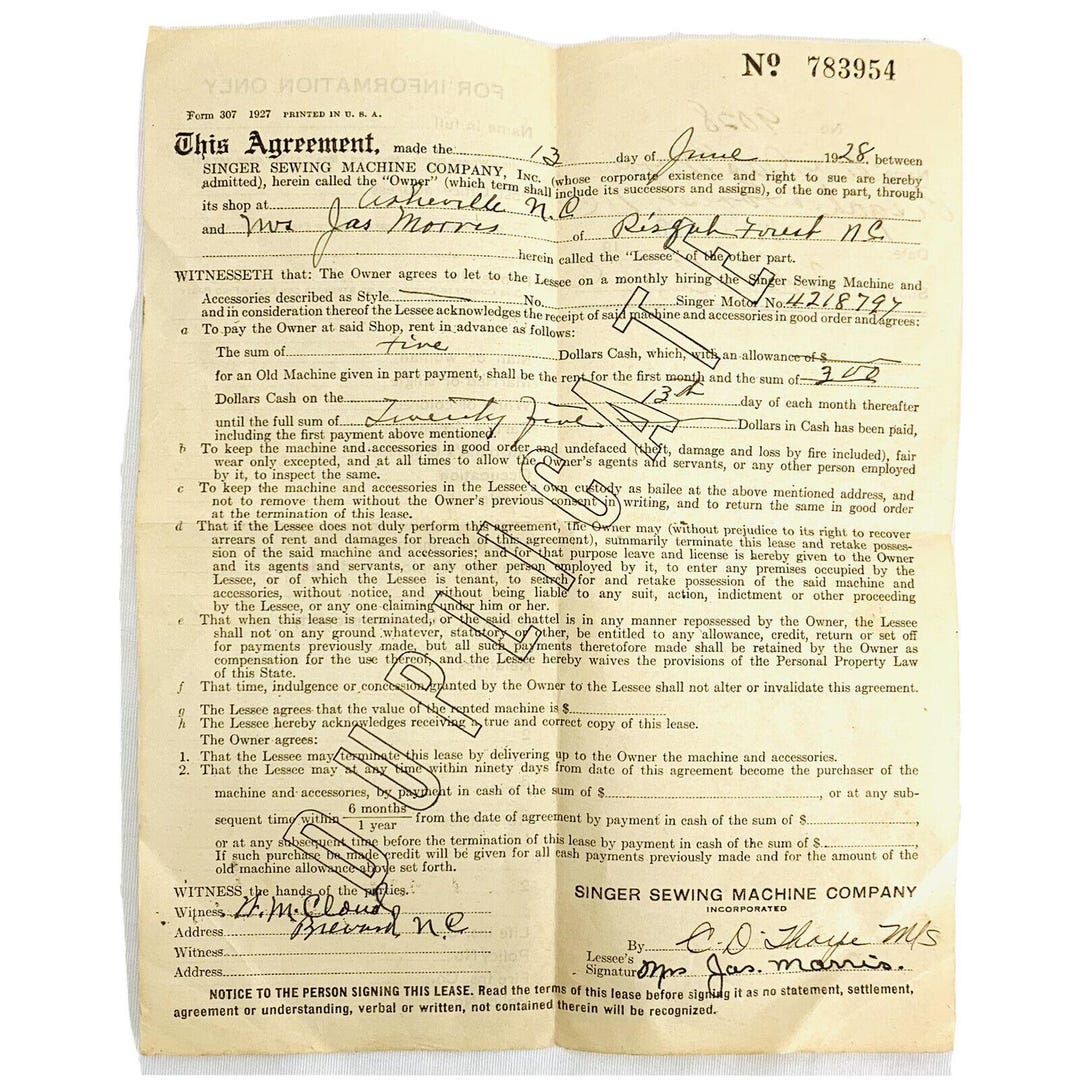 Nº 783954
Form 307 1927 PRINTED IN U. S. A.
This Agreement, made the 13 day of June 1928, between
SINGER SEWING MACHINE COMPANY, Inc. (whose corporate existence and right to sue are hereby
admitted), herein called the "Owner" (which term shall include its successors and assigns), of the one part, through
its shop at Asheville N.C
and Mrs Jas Morris of Pisgah Forest NC
herein called the "Lessee" of the other part.
WITNESSETH that: The Owner agrees to let to the Lessee on a monthly hiring the Singer Sewing Machine and
Accessories described as Style No. Singer Motor No. 4218797
and in consideration thereof the Lessee acknowledges the receipt of said machine and accessories in good order and agrees:
a To pay the Owner at said Shop, rent in advance as follows:
The sum of Five Dollars Cash, which, with an allowance of $
for an Old Machine given in part payment, shall be the rent for the first month and the sum of 300
Dollars Cash on the 13th day of each month thereafter
until the full sum of Twenty five Dollars in Cash has been paid,
including the first payment above mentioned.
b To keep the machine and accessories in good order and undefaced (theft, damage and loss by fire included), fair
wear only excepted, and at all times to allow the Owner's agents and servants, or any other person employed
by it, to inspect the same.
c To keep the machine and accessories in the Lessee's own custody as bailee at the above mentioned address, and
not to remove them without the Owner's previous consent in writing, and to return the same in good order
at the termination of this lease.
d That if the Lessee does not duly perform this agreement, the Owner may (without prejudice to its right to recover
arrears of rent and damages for breach of this agreement), summarily terminate this lease and retake posses-
sion of the said machine and accessories; and for that purpose leave and license is hereby given to the Owner
and its agents and servants, or any other person employed by it, to enter any premises occupied by the
Lessee, or of which the Lessee is tenant, to search for and retake possession of the said machine and
accessories, without notice, and without being liable to any suit, action, indictment or other proceeding
by the Lessee, or any one claiming under him or her.
e That when this lease is terminated, or the said chattel is in any manner repossessed by the Owner, the Lessee
shall not on any ground whatever, statutory or other, be entitled to any allowance, credit, return or set off
for payments previously made, but all such payments theretofore made shall be retained by the Owner as
compensation for the use thereof, and the Lessee hereby waives the provisions of the Personal Property Law
of this State.
f That time, indulgence or concession granted by the Owner to the Lessee shall not alter or invalidate this agreement.
g The Lessee agrees that the value of the rented machine is $
h The Lessee hereby acknowledges receiving a true and correct copy of this lease.
The Owner agrees:
1. That the Lessee may terminate this lease by delivering up to the Owner the machine and accessories.
2. That the Lessee may at any time within ninety days from date of this agreement become the purchaser of the
machine and accessories, by payment in cash of the sum of $ , or at any sub-
sequent time within 6 months
1 year from the date of agreement by payment in cash of the sum of $ ,
or at any subsequent time before the termination of this lease by payment in cash of the sum of $ .
If such purchase be made credit will be given for all cash payments previously made and for the amount of the
old machine allowance above set forth.
DUPLICATE
WITNESS the hands of the parties.
Witness W. McCloud
Address Brevard N.C
Witness
Address
SINGER SEWING MACHINE COMPANY
INCORPORATED
By C. D. Thorpe M/S
Lessee's
Signature Mrs Jas. Morris.
NOTICE TO THE PERSON SIGNING THIS LEASE. Read the terms of this lease before signing it as no statement, settlement,
agreement or understanding, verbal or written, not contained therein will be recognized.